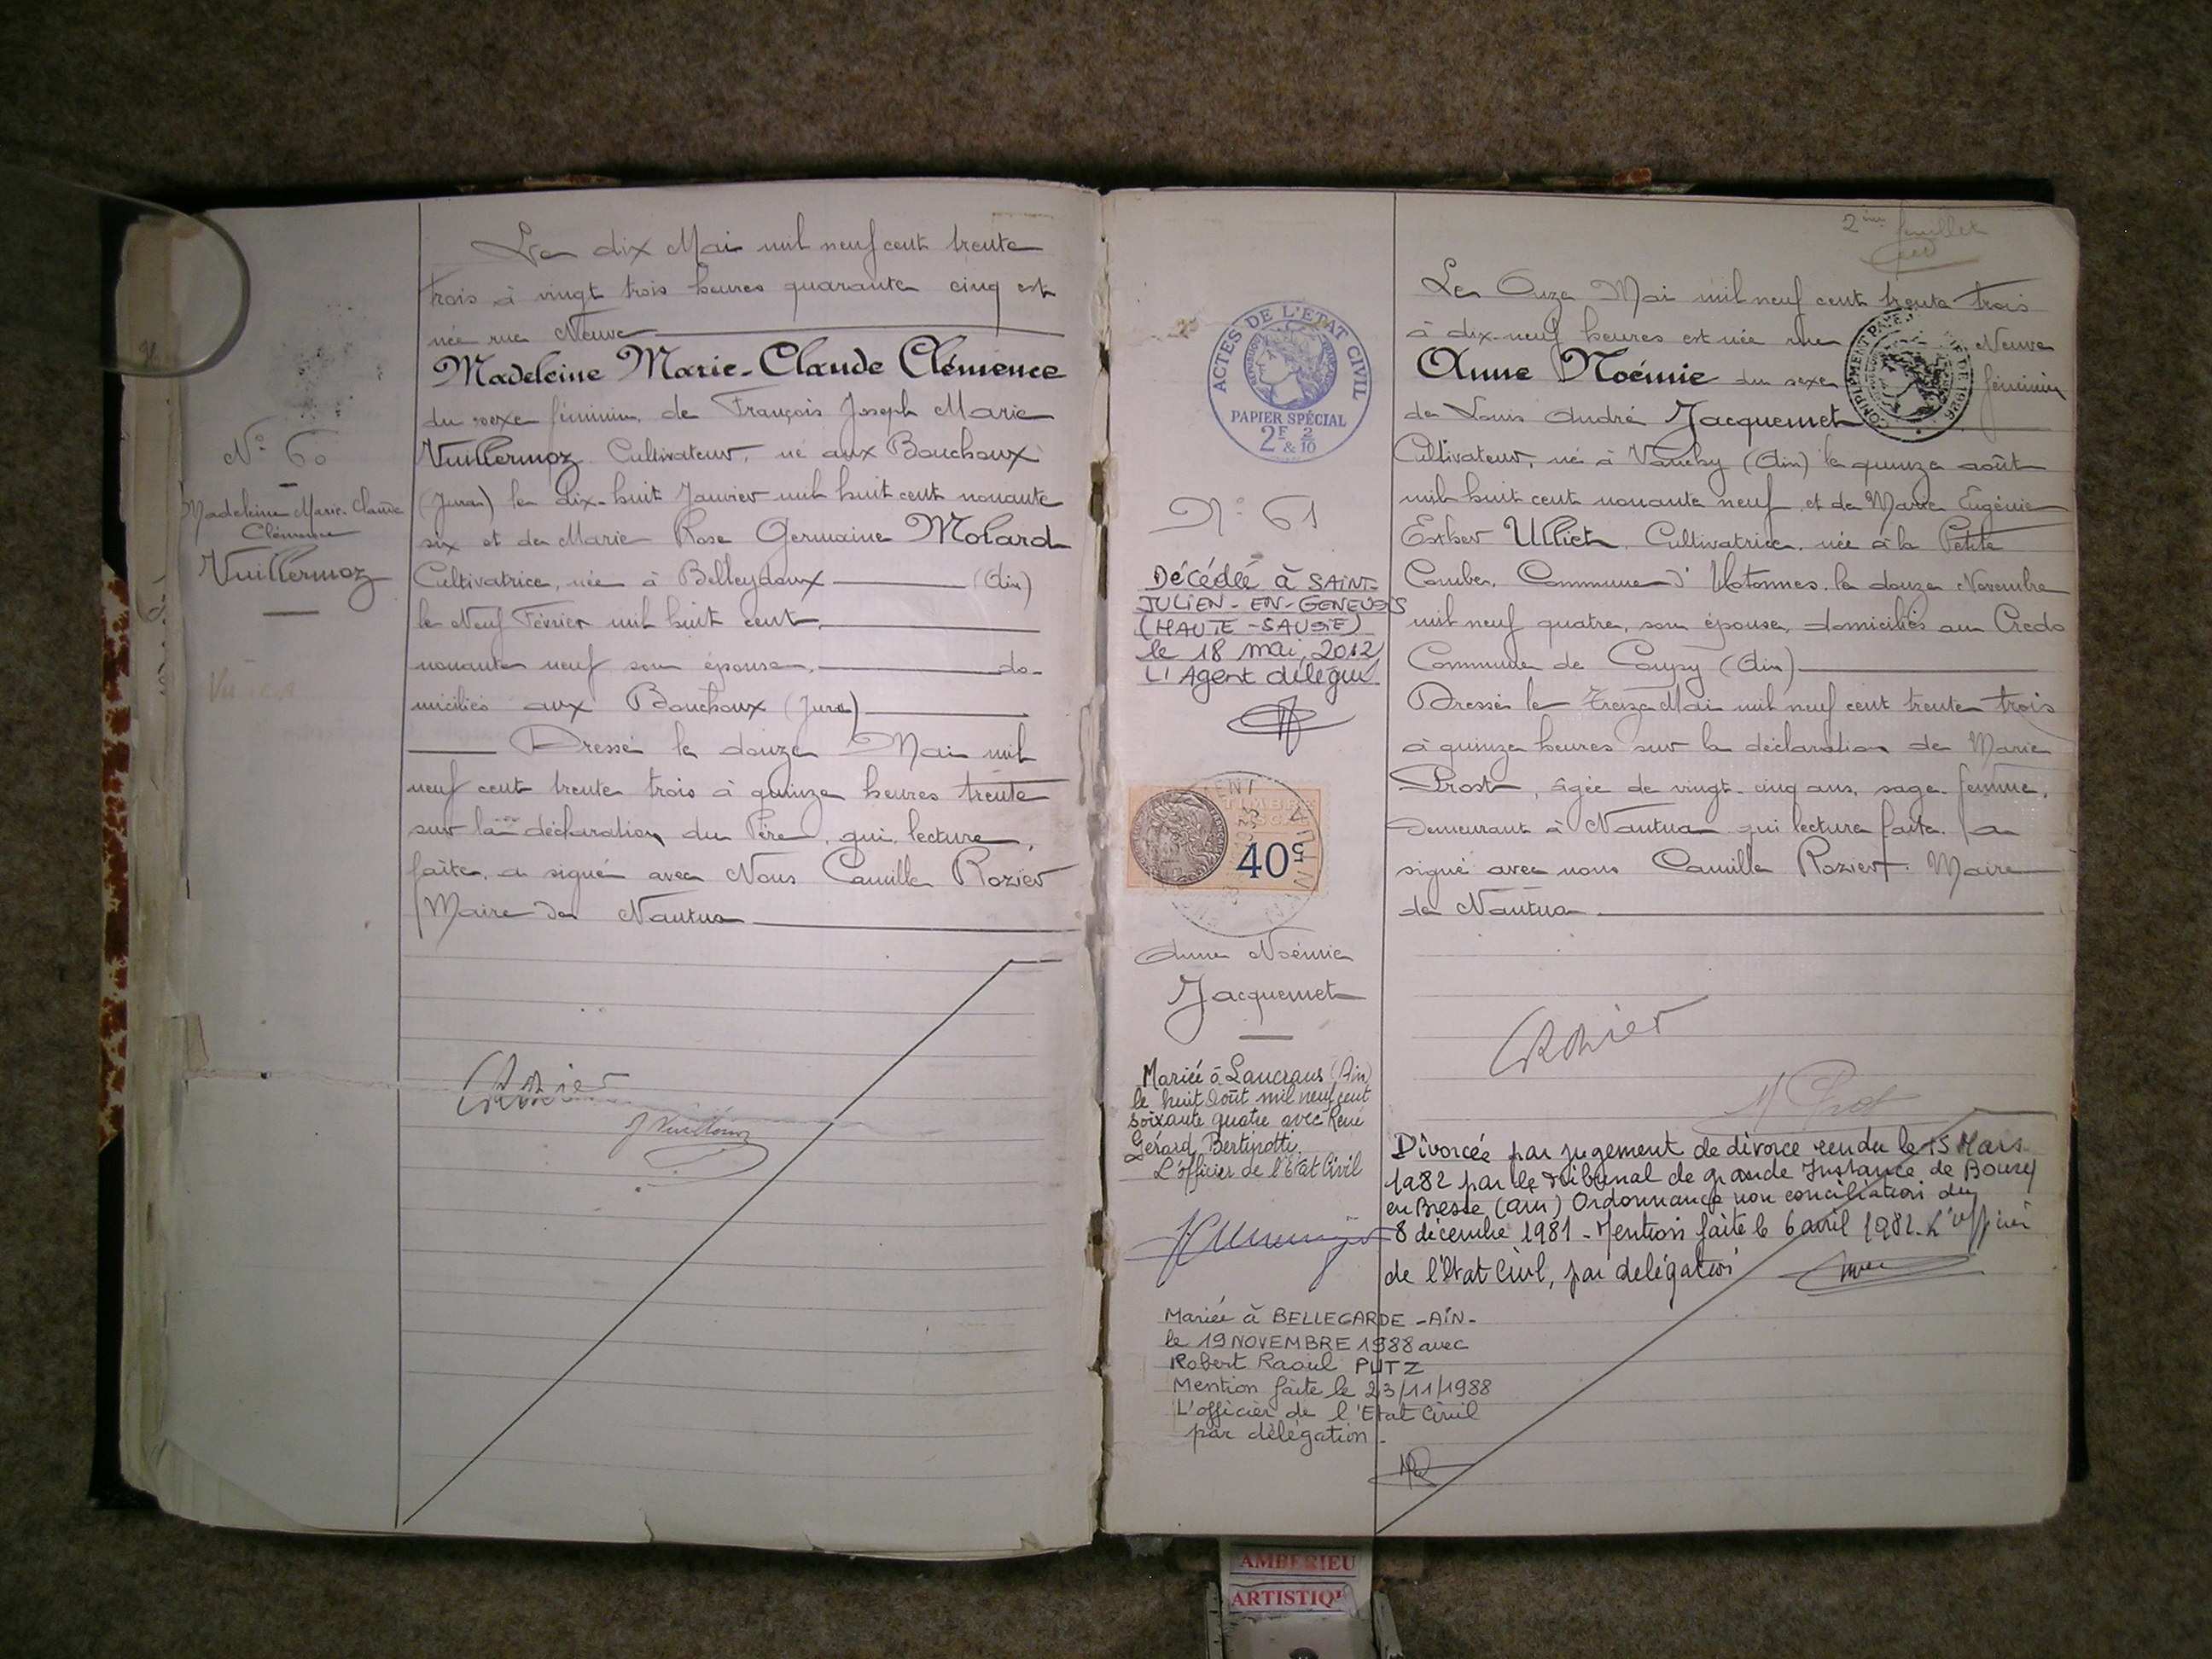 N° 60
Madeleine Marie-Claude
Clémence
Vuillermoz
Le dix Mai mil neuf cent trente
trois à vingt trois heures quarante cinq est
née rue Neuve
Madeleine Marie-Claude Clémence
du sexe féminin, de François Joseph Marie
Vuillermoz Cultivateur, né aux Bouchoux
(Jura) le dix-huit Janvier mil huit cent nonante
six et de Marie Rose Germaine Molard
Cultivatrice, née à Belleydoux (Ain)
le Neuf Février mil huit cent
nonante neuf son épouse, do-
miciliés aux Bouchoux (Jura)
Dressé le douze Mai mil
neuf cent trente trois à quinze heures trente
sur la déclaration du Père, qui, lecture,
faite, a signé avec Nous Camille Rozier
Maire de Nantua
CRozier
J Vuillermoz
ACTES DE L'ETAT CIVIL
PAPIER SPÉCIAL
2F & 2/10
N° 61
Décédée à SAINT-
JULIEN-EN-GENEVOIS
(HAUTE-SAVOIE)
le 18 mai 2012
L'Agent délégué
TIMBRE
40c
Anne Noémie
Jacquemet
Mariée à Lancrans (Ain)
le huit Août mil neuf cent
soixante quatre avec René
Gérard Bertinotti.
L'officier de l'Etat Civil
Mariée à BELLEGARDE -AIN-
le 19 NOVEMBRE 1988 avec
Robert Raoul PUTZ
Mention faite le 23/11/1988
L'officier de l'Etat Civil
par délégation.
2ème feuillet
Le Onze Mai mil neuf cent trente trois
à dix-neuf heures est née rue Neuve
Anne Noémie du sexe féminin
de Louis André Jacquemet
Cultivateur, né à Vanchy (Ain) le quinze août
mil huit cent nonante neuf, et de Marie Eugénie
Esther Ulliet, Cultivatrice, née à la Petite
Combe, Commune d'Hotonnes, le douze Novembre
mil neuf quatre, son épouse, domiciliés au Credo
Commune de Coupy (Ain)
Dressé le Treize Mai mil neuf cent trente trois
à quinze heures sur la déclaration de Marie
Prost, âgée de vingt-cinq ans, sage-femme,
Demeurant à Nantua qui lecture faite, a
signé avec nous Camille Rozier, Maire
de Nantua
CRozier
M Prost
Divorcée par jugement de divorce rendu le 15 Mars
1982 par le tribunal de grande Instance de Bourg
en Bresse (Ain) Ordonnance non conciliation du
8 décembre 1981 - Mention faite le 6 avril 1982. L'officier
de l'Etat Civil, par délégation
AMBERIEU
ARTISTIQU